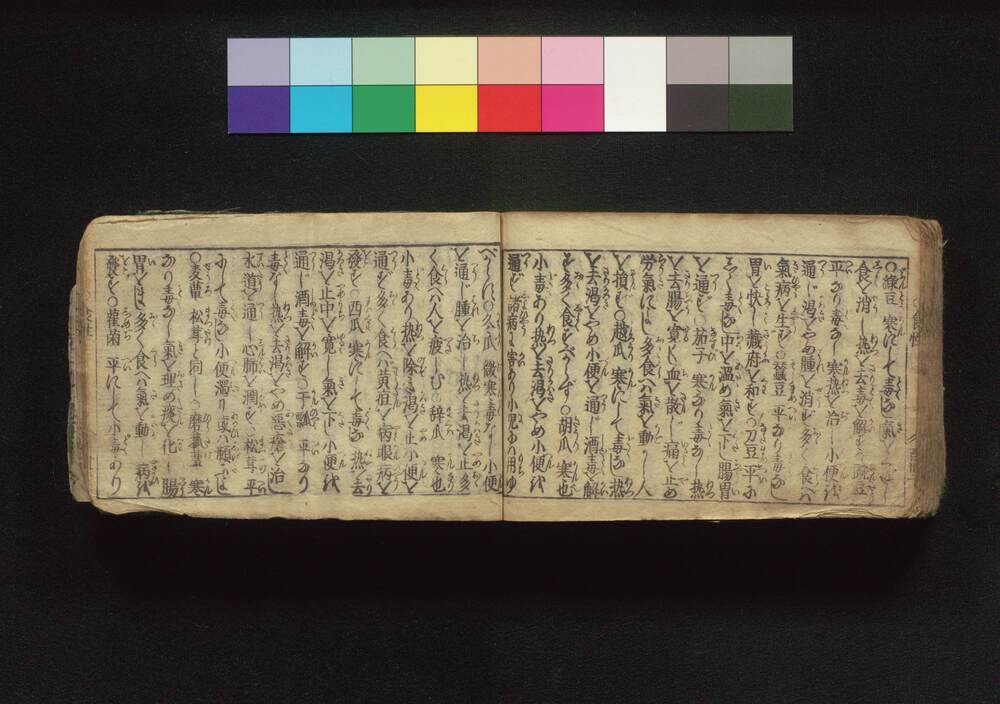 ○緑豆 寒にして毒なし氣を
食を消し熱を去毒を解す ○豌豆
平なり毒なし寒熱を治し小便を
通じ渇をやめ腫を消す多く食へハ
氣病を生ず ○蚕豆 平なり毒なし
胃を快し臓府を和す ○刀豆 平に
して毒なし中を温め氣を下し腸胃
を通ず ○茄子 寒なり毒なし熱
を去腸を寛し血を散し痛を止め
労氣によし多食ハ氣を動かし人
を損ず ○越瓜 寒にして毒なし熱
を去渇をやめ小便を通し酒毒を解
す多く食すべからず ○胡瓜 寒也
小毒あり熱を去渇をやめ小便を
通ず諸病に害あり小児に用ゆ
べからず ○冬瓜 微寒毒なし小便
を通し腫を治し熱を去渇を止多
く食へハ人を疲しむ ○醉瓜 寒也
小毒あり熱を除き渇を止小便を
通ず多く食ヘハ黄疸を病眼病を
發す ○西瓜 寒にして毒なし熱を去
渇を止中を寛し氣を下し小便を
通し酒毒を解す ○干瓢 平にして
毒なし熱を去渇をやめ悪瘡を治し
水道を通し心肺を潤す ○松茸 平
にして毒なし小便濁り或ハ頻なるによし
○麦蕈 松茸と同し ○磨菰蕈 寒
なり毒なし氣を理め痰を化し腸
胃によし多く食ヘハ氣を動し病を
發す ○萑菌 平にして小毒あり